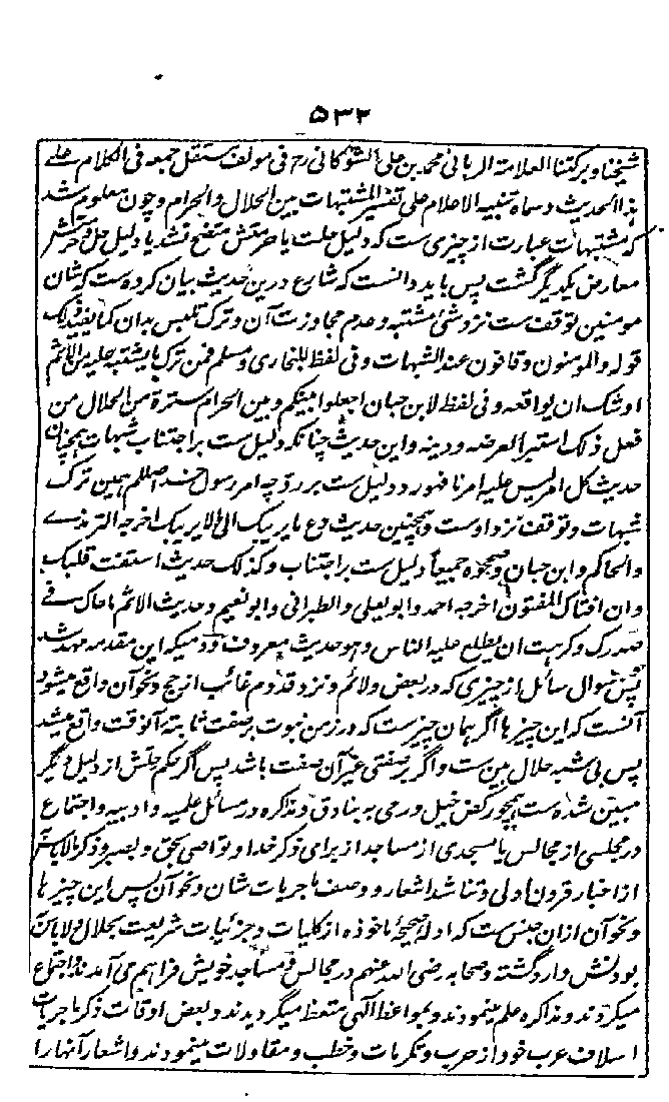 ۵۳۲
شیخنا و برکتنا العلامة الربانی محمد بن علی الشوکانی رح فی مولف مستقل جمعه فی الکلام علے
هذا الحدیث و سماه تنبیه الاعلام علی تفسیر المشتبهات بین الحلال والحرام و چون معلوم شد
که مشتبهات عبارت از چیزی ست که دلیل حلت یا حرمتش متضح نشد یا دلیل حل و حرمتش
معارض یکدیگر گشت پس باید دانست که شارع درین حدیث بیان کرده ست که شان
مومنین توقف ست نزد شیٔ مشتبه و عدم مجاوزت آن و ترک تلبس بدان کما یفید ذلک
قوله والمومنون وقافون عند الشبهات و فی لفظ للبخاری و مسلم فمن ترک ما یشتبه علیه من الاثم
اوشک ان یواقعه و فی لفظ لابن حبان اجعلوا بینکم و بین الحرام سترة من الحلال من
فعل ذلک استبرأ لعرضه و دینه و این حدیث چنانکه دلیل ست بر اجتناب شبهات همچنان
حدیث کل امر لیس علیه امرنا فهو رد دلیل ست بر رد چه امر رسول خدا صللم همین ترک
شبهات و توقف نزد اوست و همچنین حدیث دع ما یریبک الی ما لا یریبک اخرجه الترمذے
والحاکم و ابن حبان و صححوه جمیعاً دلیل ست بر اجتناب و کذلک حدیث استفت قلبک
و ان افتاک المفتون اخرجه احمد و ابو یعلی و الطبرانی و ابو نعیم و حدیث الاثم ما حاک فے
صدرک و کرهت ان یطلع علیه الناس و هو حدیث معروف و دمیکه این مقدمه ممهد شد
پس سوال سائل از چیزی که در بعض ولائم و نزد قدوم غائب از حج و نحو آن واقع میشود
آنست که این چیزها اگر همان چیز ست که در زمن نبوت بر صفت ثابته آنوقت واقع میشد
پس بی شبه حلال بین ست و اگر بر صفتی غیر آن صفت باشد پس اگر حکم حلتش از دلیل دیگر
مبین شده ست همچو رکض خیل و رمی به بنادق و مذاکره در مسائل علمیه و ادبیه و اجتماع
در مجلسی از مجالس یا مسجدی از مساجد از برای ذکر خدا و تواصی بحق و بصبر و ذکر ما لا باس
از اخبار قرون اولی و تناشد اشعار و وصف ماجریات شان و نحو آن پس این چیزها
و نحو آن ازان جنس ست که ادله صحیحهٔ ماخوذه از کلیات و جزئیات شریعت بحلال و لا باس
بودنش وارد گشته و صحابه رضی الله عنهم در مجالس و مساجد خویش فراهم می آمدند و اجتماع
میکردند و مذاکره علم مینمودند و بمواعظ الهی متعظ میگردیدند و بعض اوقات ذکر ماجریات
اسلاف عرب خود از حرب و تکرمات و خطب و مقاولات مینمودند و اشعار آنها را